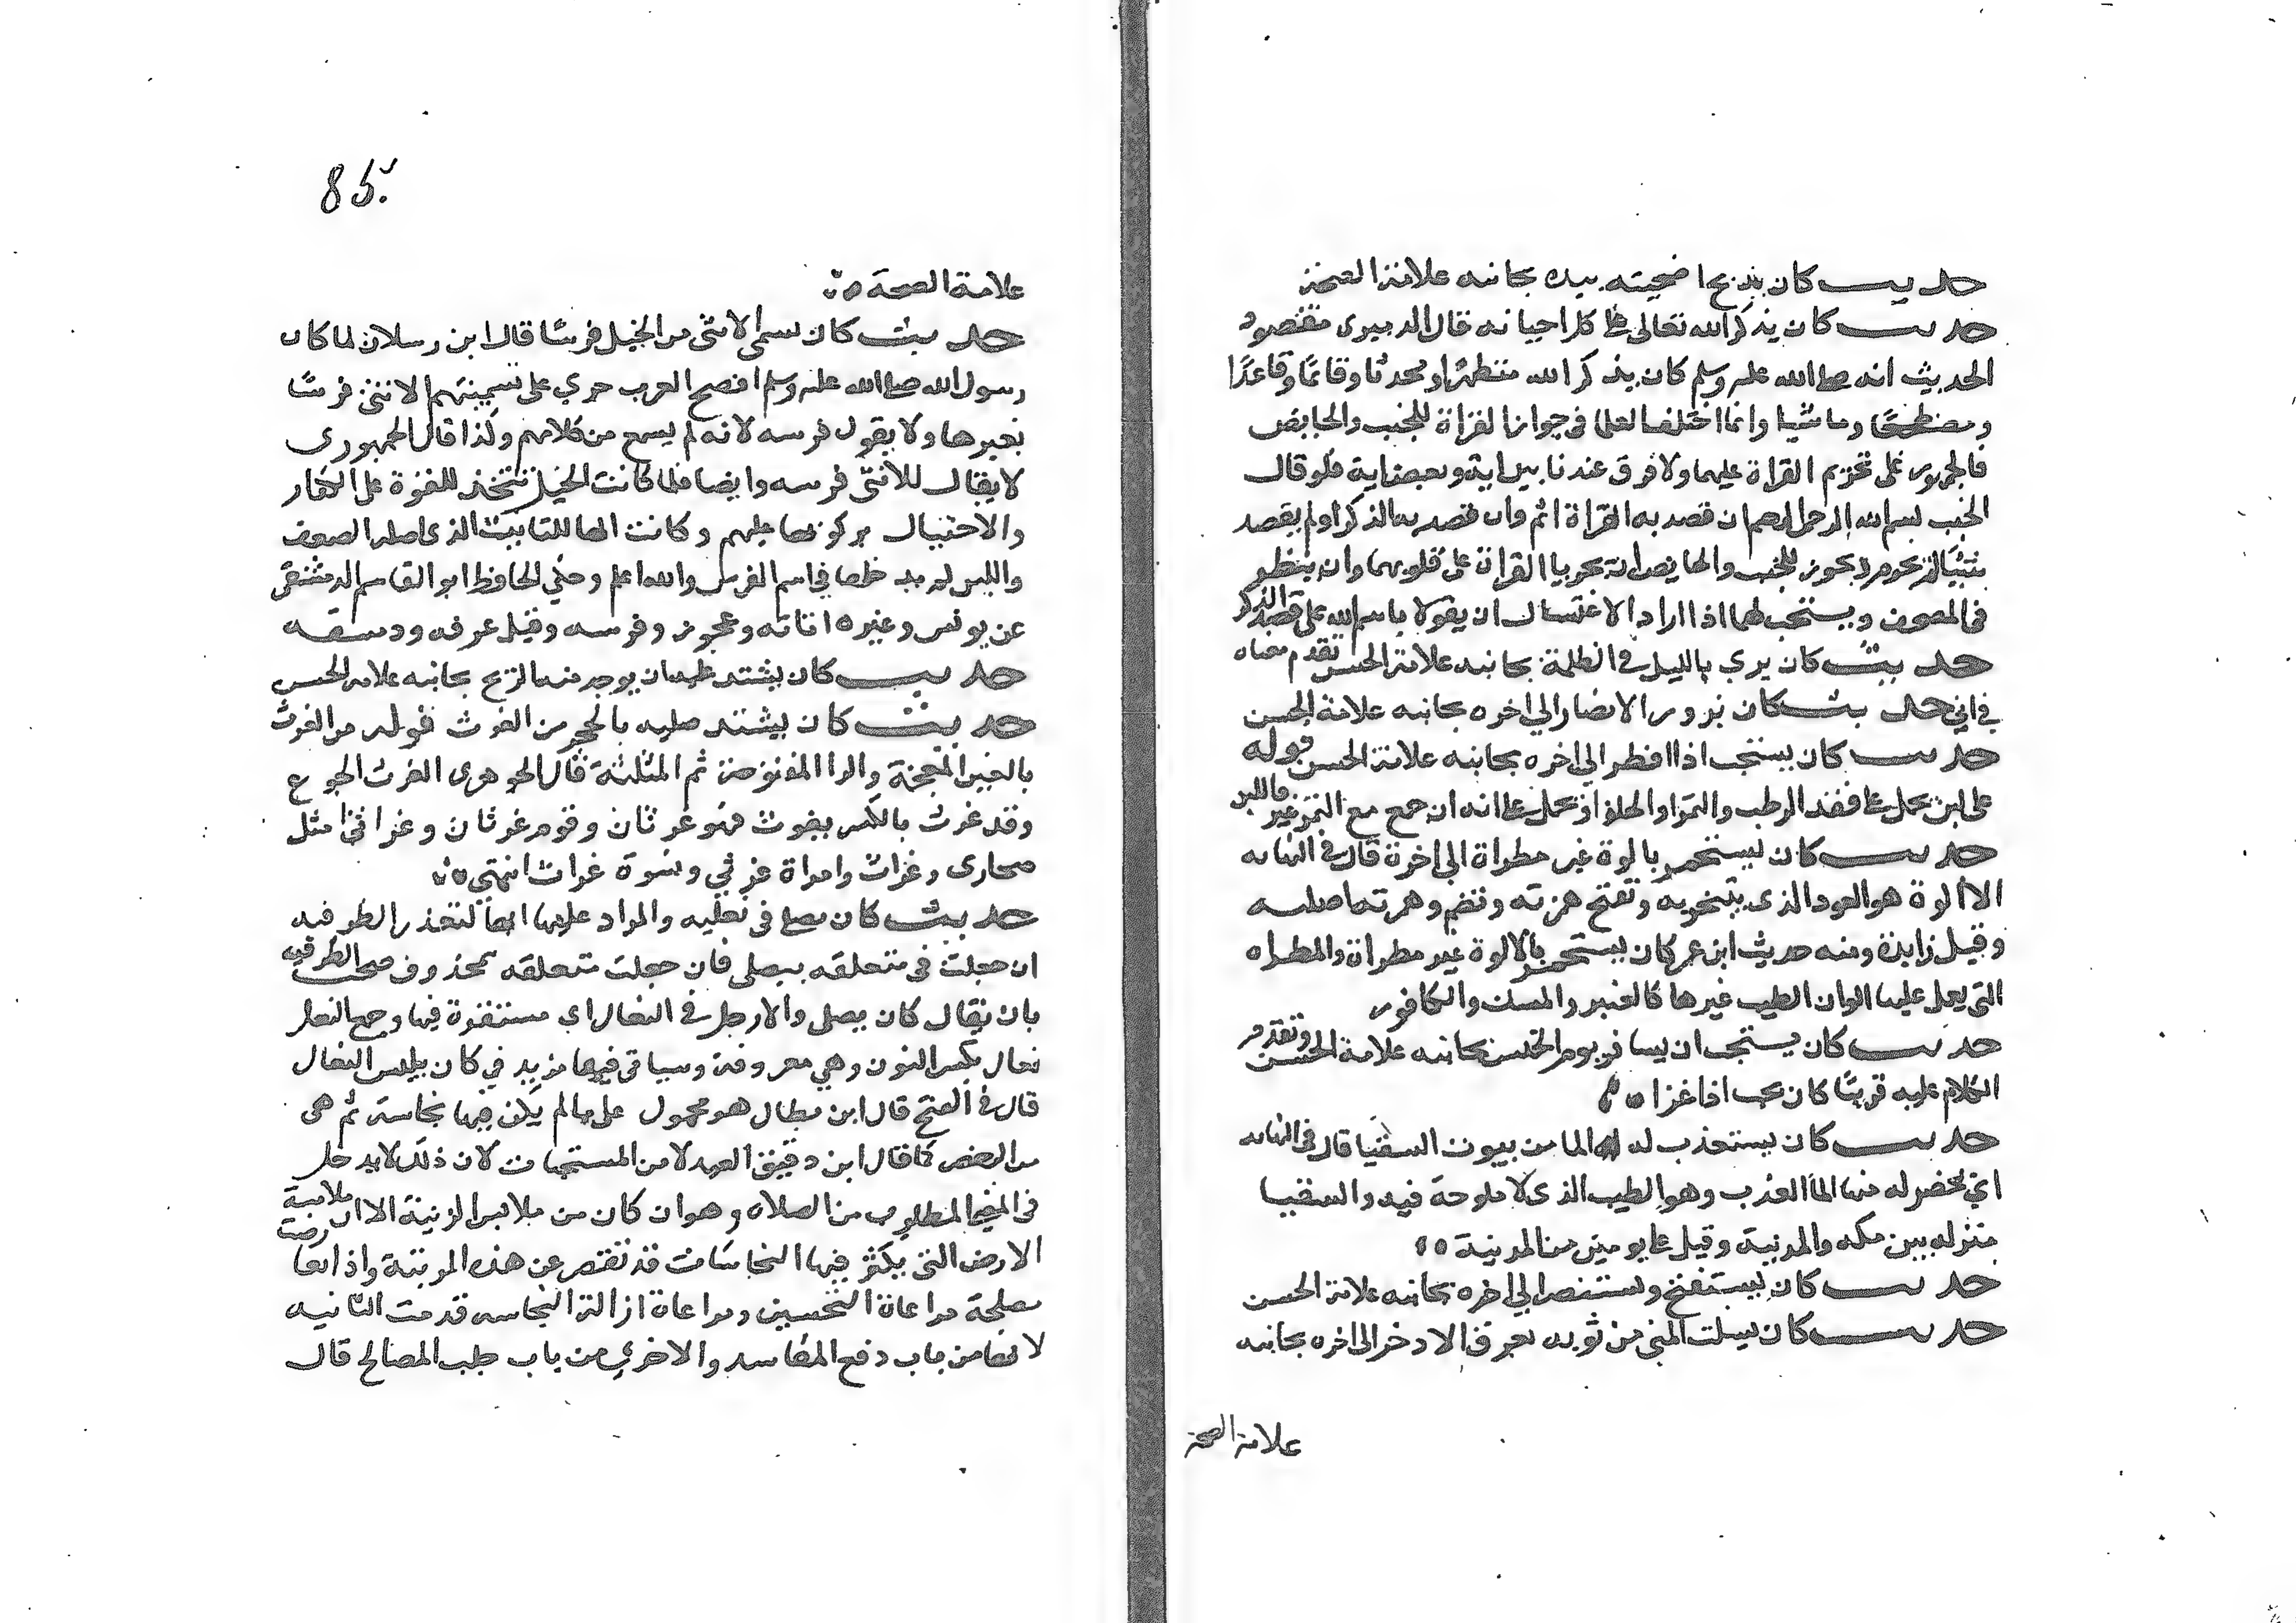 حديث كان يذبح اضحيته بيده بجانبه علامة الصحة
حديث كان يذكر الله تعالى على كل احيانه قال الدميري مقصود
الحديث انه صلى الله عليه وسلم كان يذكر الله متطهرا ومحدثا وقائما وقاعدا
ومضطجعا وماشيا وانما اختلف العلما في جواز القراة للجنب والحايض
فالجمهور على تحريم القراة عليهما ولا فرق عندنا بين اية وبعض اية فلو قال
الجنب بسم الله الرحمن الرحيم ان قصد به القراة اثم وان قصد به الذكر او لم يقصد
شيئا لم يحرم ويجوز للجنب والحايض ان يجريا القران على قلوبهما وان ينظر
في المصحف ويستحب لهما اذا ارادا الاغتسال ان يقولا باسم الله على قصد الذكر
حديث كان يرى بالليل في الظلمة بجانبه علامة الحسن تقدم معناه
في اني حديث كان يزور الانصار الى اخره بجانبه علامة الحسن
حديث كان يستحب اذا افطر الى اخره بجانبه علامة الحسن قوله
على لبن يحمل على فقد الرطب والتمر او الحلو او يحمل على انه ان جمع مع التمر غيره كاللبن
حديث كان يستجمر بالوة غير مطراة الى اخره قال في النهايه
الالوة هو العود الذي يتبخر به وتفتح همزته وتضم وهمزتها اصليه
وقيل زايدة ومنه حديث ابن عمر كان يستجمر بالالوة غير مطراة والمطراه
التي يعمل عليها الوان الطيب غيرها كالعنبر والمسك والكافور
حديث كان يستحب ان يسافر يوم الخميس بجانبه علامة الحسن وتقدم
الكلام عليه قريبا كان يحب اذا غزا
حديث كان يستعذب له الما من بيوت السقيا قال في النهايه
اي يحضر له منها الما العذب وهو الطيب الذي لا ملوحة فيه والسقيا
منزله بين مكه والمدينة وقيل على يومين من المدينة
حديث كان يستفتح ويستنصر الى اخره بجانبه علامة الحسن
حديث كان يسلت المني من ثوبه بعرق الاذخر الى اخره بجانبه
علامة الصحة
85
علامة الصحة
حديث كان يسمى الانثى من الخيل فرسا قال ابن رسلان لما كان
رسول الله صلى الله عليه وسلم افصح العرب جرى على تسميتهم الانثى فرسا
بغيرها ولا يقول فرسه لانه لم يسمع من كلامهم وكذا قال الجمهوري
لا يقال للانثى فرسه وايضا فلما كانت الخيل تتخذ للغزوة على الكفار
والاختيال بركوبها عليهم وكانت الها للتانيث الذي اصله الضعف
واللين لم يدخلها في اسم الفرس والله اعلم وحكي الحافظ ابو القاسم الدمشقي
عن يونس وغيره اتانه وعجوزه وفرسه وقيل عرفه ودمشقه
حديث كان يشتد عليه ان يوجد منه الريح بجانبه علامة الحسن
حديث كان يشد صلبه بالحجر من الغرث قوله من الغرث
بالغين المعجمة والرا المفتوحة ثم المثلثة قال الجوهري الغرث الجوع
وقد غرث بالكسر يغرث فهو غرثان وقوم غرثان وغراثى مثل
صحارى وغراث وامراة غرثي ونسوة غراث انتهى
حديث كان يصلي في نعليه والمراد عليهما ايضا لتعذر الظرفيه
ان جعلت في متعلقه بيصلي فان جعلت متعلقه بمحذوف صحت الظرفيه
بان يقال كان يصلي والارجل في النعال اي مستقرة فيها وجمع النعل
نعال بكسر النون وهي معروفة وسياتي فيها مزيد في كان يلبس النعال
قال في الفتح قال ابن بطال هو محمول على ما لم يكن فيها نجاسة ثم هي
من الرخص كما قال ابن دقيق العيد لا من المستحبات لان ذلك لا يدخل
في المعنى المطلوب من الصلاه وهو ان كان من ملابس الزينة الا ان ملامسة
الارض التي يكثر فيها النجاسات قد تقصر عن هذه الرتبة واذا تعارضت
مصلحة مراعاة التحسين ومراعاة ازالة النجاسه قدمت الثانيه
لانها من باب دفع المفاسد والاخرى من باب جلب المصالح قال